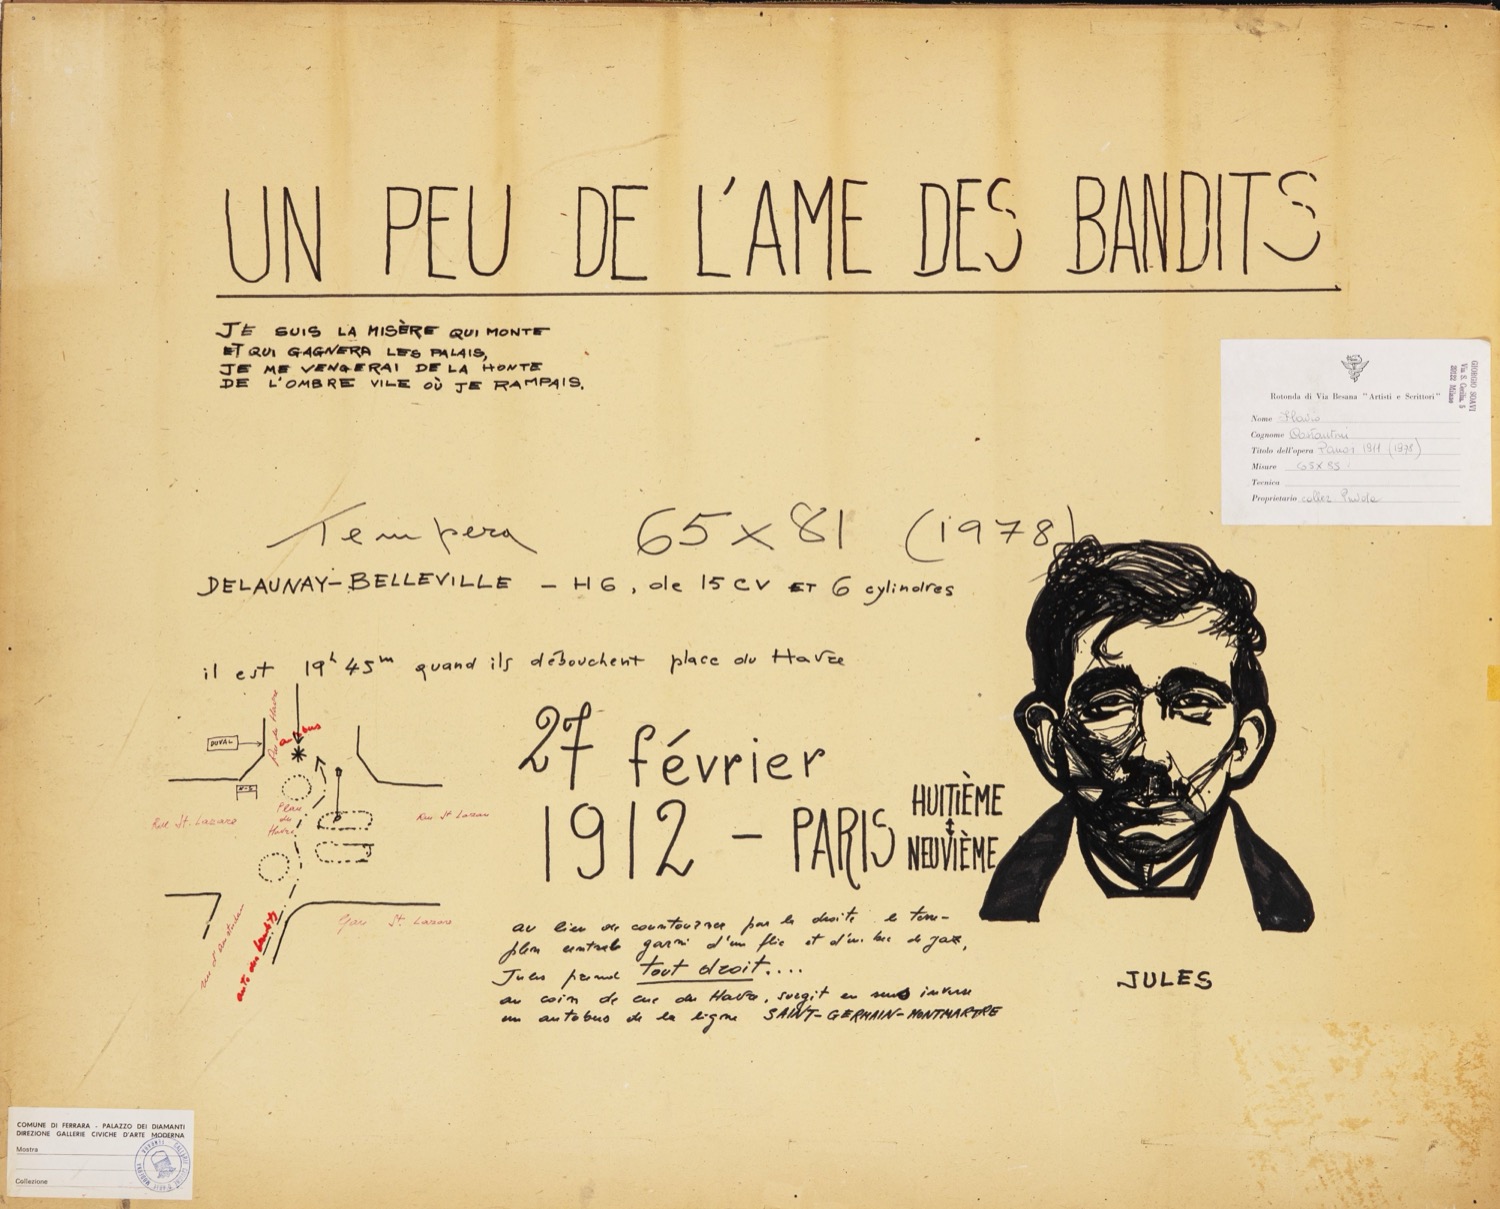 UN PEU DE L'AME DES BANDITS
JE SUIS LA MISÈRE QUI MONTE
ET QUI GAGNERA LES PALAIS,
JE ME VENGERAI DE LA HONTE
DE L'OMBRE VILE OÙ JE RAMPAIS.
GIORGIO SOAVI
Via S. Cecilia, 5
20122 Milano
Rotonda di Via Besana "Artisti e Scrittori"
Nome Flavio
Cognome Costantini
Titolo dell'opera 1911 (1978)
Misure 65X85
Tecnica
Proprietario collez.
Tempera 65x81 (1978)
DELAUNAY-BELLEVILLE - H6, de 15 CV ET 6 cylindres
il est 19h 45m quand ils débouchent place du Havre
Rue du Havre
autobus
DUVAL
Place
du
Havre
Rue St. Lazare
Rue St Lazare
P
Gare St. Lazare
rue d'Amsterdam
auto des bandits
27 février
1912 - PARIS
HUITIÈME
NEUVIÈME
au lieu de countourner par la droite le terre-
plein centrale garni d'un flic et d'un bec de gaz,
Jules prend tout droit....
au coin de rue du Havre, surgit en sens inverse
un autobus de la ligne SAINT-GERMAIN-MONTMARTRE
JULES
COMUNE DI FERRARA - PALAZZO DEI DIAMANTI
DIREZIONE GALLERIE CIVICHE D'ARTE MODERNA
Mostra
Collezione